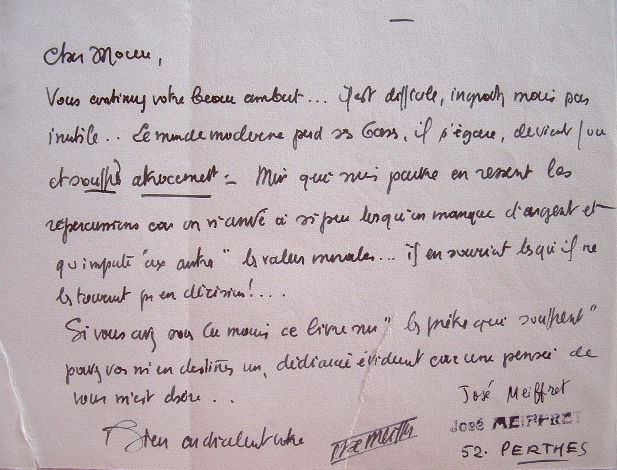 Cher Monsieur,
Vous continuez votre beau combat... il est difficile, ingrat, mais pas
inutile.. Le monde moderne perd ses bases, il s'égare, devient fou
et souffre atrocement - Moi qui suis pauvre en ressent les
répercussions car on n'arrive à si peu lorsqu'on manque d'argent et
qu'impute "aux autres" les valeurs morales... ils en sourient lorsqu'ils ne
les tournent pas en dérision!...
Si vous avez sous la main ce livre "les prêtres qui souffrent"
pouvez vous m'en destiner un, dédicacé évident car une pensée de
vous m'est chère..
José Meiffret
Bien cordialement votre
José MEIFFRET
52. PERTHES